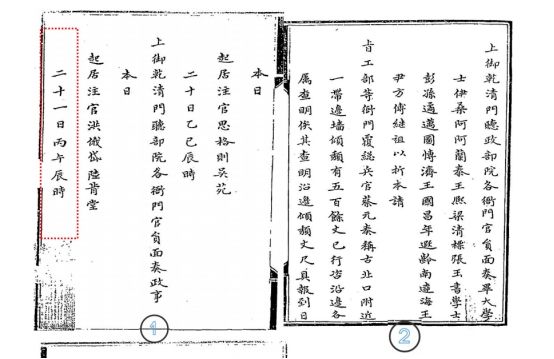 本日
起居注官思格則吳苑
二十日乙巳辰時
上御乾清門聽部院各衙門官員面奏政事
本日
起居注官洪俄岱陸肯堂
二十一日丙午辰時
1
上御乾清門聽政部院各衙門官員面奏畢大學
士伊桑阿阿蘭泰王熙梁清標張玉書學士
彭孫遹邁圖博濟王國昌年遐齡南達海王
尹方傅繼祖以折本請
旨工部等衙門覆總兵官蔡元奏稱古北口附近
一帶邊墻傾頹有五百餘丈已行咨沿邊各
属查明俟其查明沿邊傾頹丈尺具報到日
2